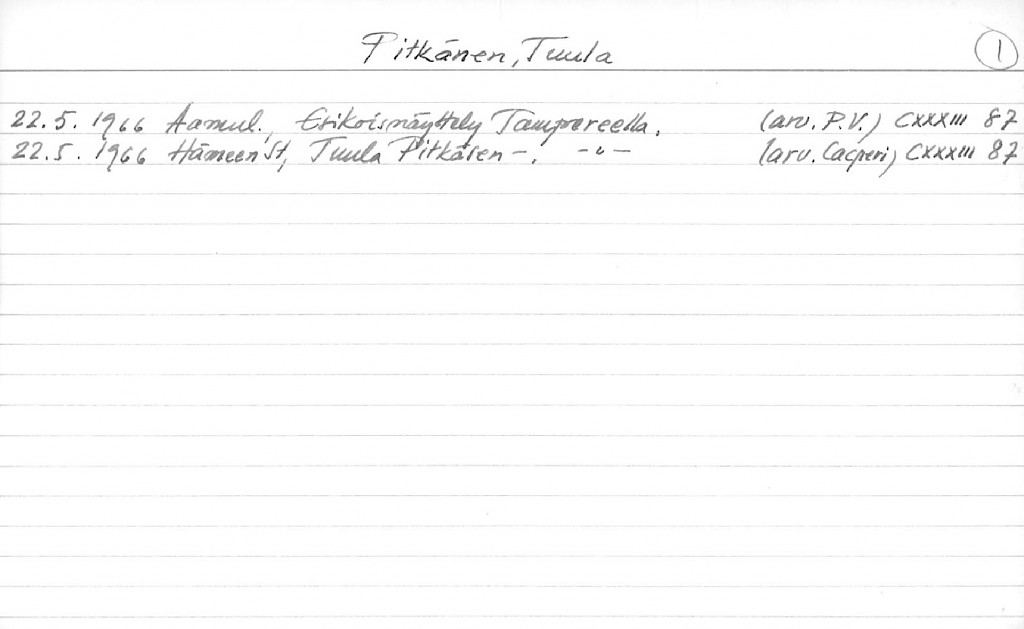 Pitkänen, Tuula
1
22.5. 1966 Aamul., Esikoisnäyttely Tampereella. (arv. P.V.) CXXXIII 87
22.5. 1966 Hämeen St, Tuula Pitkäsen -, -"- (arv. Casperi) CXXXIII 87